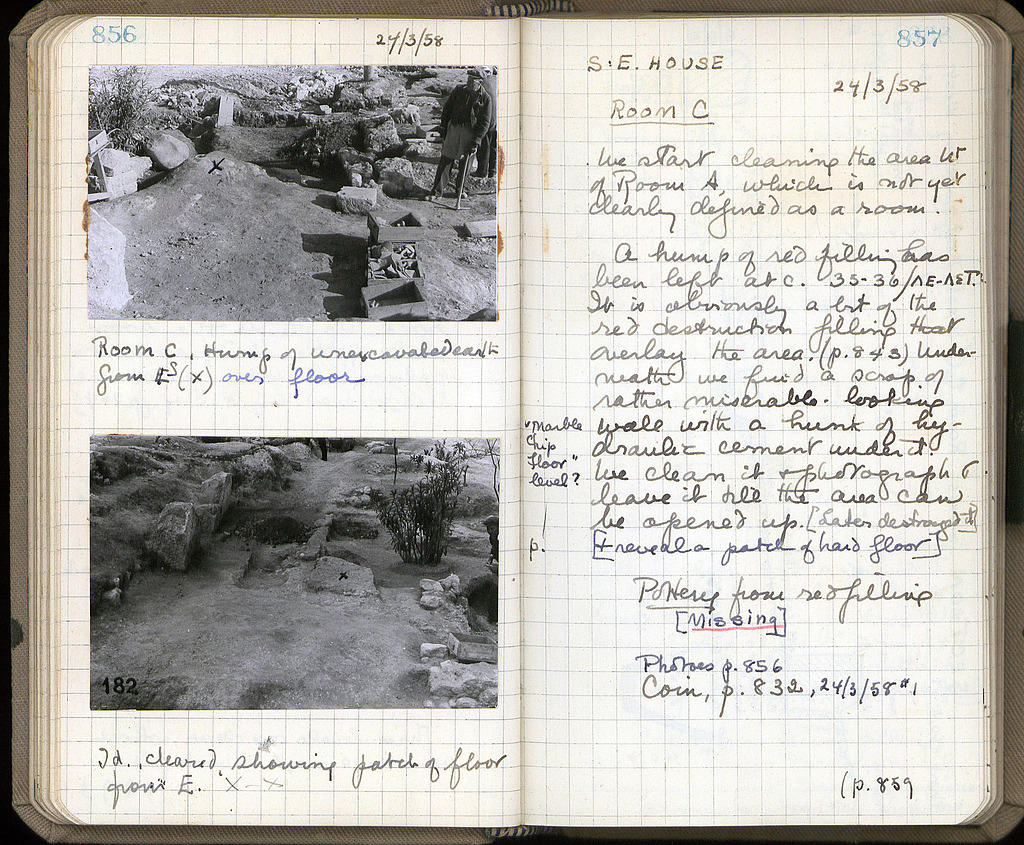 856
24/3/58
Room C. Hump of unexcavated earth
from ES (X) over floor
182
Id. cleared, showing patch of floor
from E. X - X
857
S.E. HOUSE
24/3/58
Room C
We start cleaning the area W
of Room A, which is not yet
clearly defined as a room.
A hump of red filling has
been left at c. 35-36/ΛE-ΛΣΤ.
It is obviously a bit of the
red destruction filling that
overlay the area. (p. 843) Under-
neath we find a scrap of
rather miserable-looking
wall with a hunk of hy-
draulic cement under it.
We clean it + photograph &
leave it till the area can
be opened up. [Later destroyed it]
[+ reveal a patch of hard floor]
"Marble
Chip
Floor"
level?
p.
Pottery from red filling
[Missing]
Photoes p. 856
Coin, p. 832, 24/3/58 #1
(p. 859